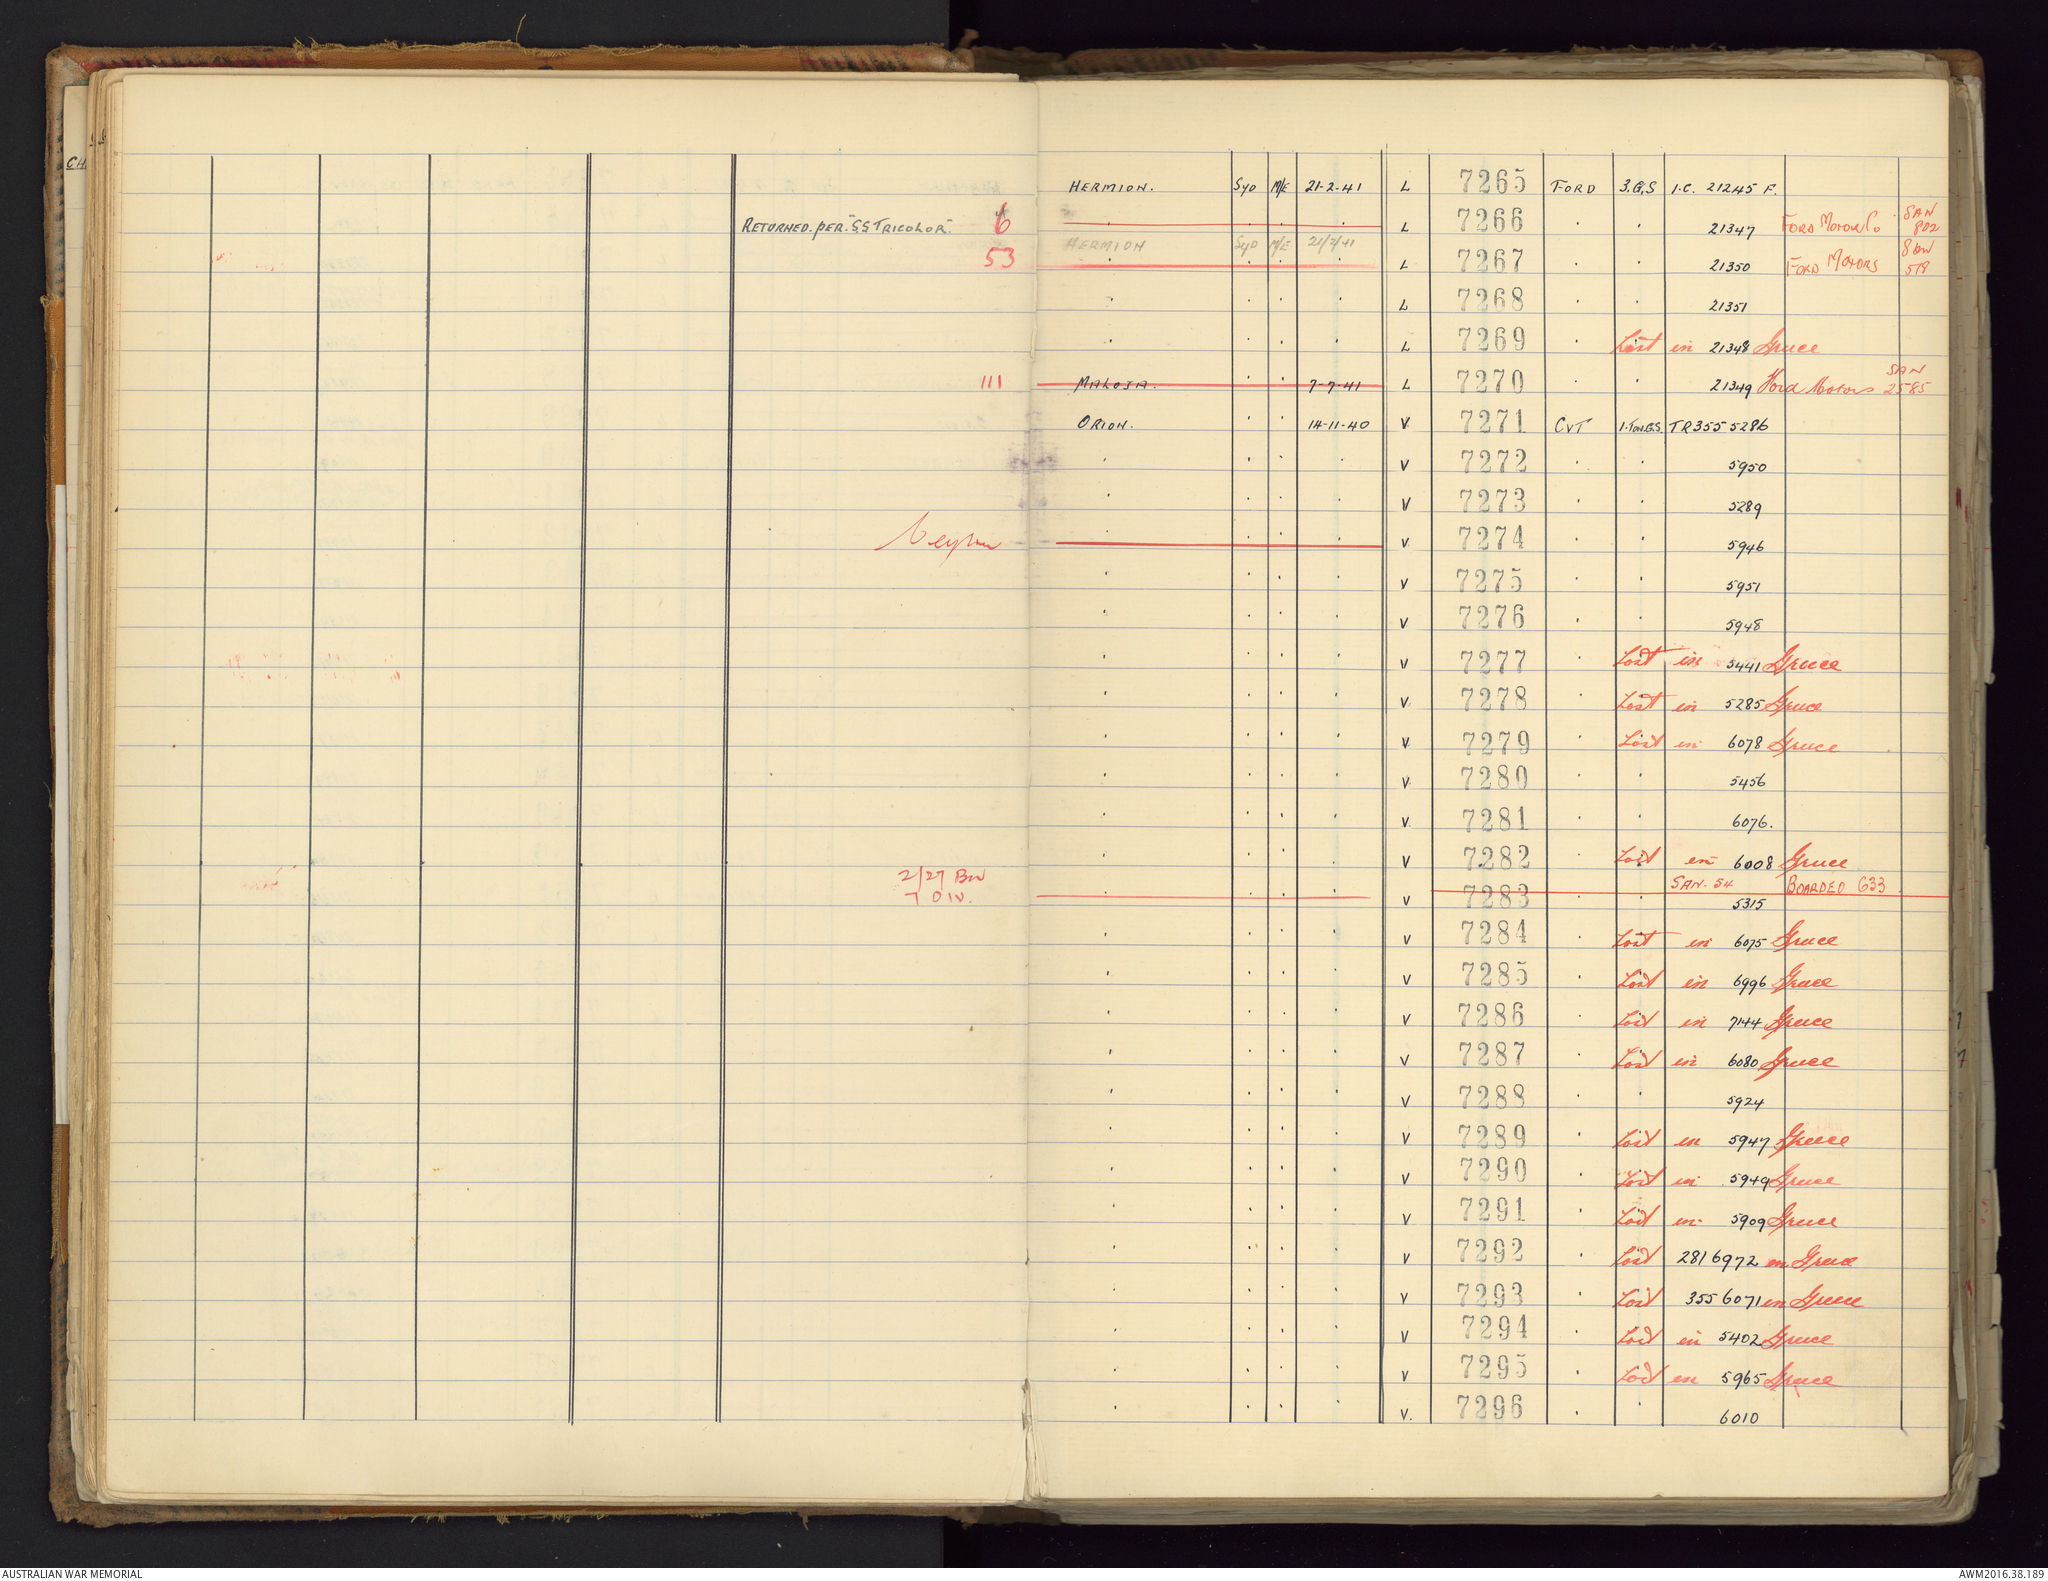 CH
RETURNED. PER. "S.S TRICOLOR" 6
53
111
Ceylon
2/27 Bn
7 DIV.
HERMION. SYD M/E 21-2-41 L 7265 FORD 3.G.S 1.C. 21245 F.
" " " " L 7266 " " 21347 FORD MOTOR Co SAN 802
HERMION SYD M/E 21/2/41
" " " " L 7267 " " 21350 FORD MOTORS SAN 519
" " " " L 7268 " " 21351
" " " " L 7269 " Lost in 21348 Greece
MALOJA. " " 7-7-41 L 7270 " " 21349 Ford Motors SAN 2585
ORION. " " 14-11-40 V 7271 CVT 1.TON.G.S TR355 5286
" " " " V 7272 " " 5950
" " " " V 7273 " " 5289
" " " " V 7274 " " 5946
" " " " V 7275 " " 5951
" " " " V 7276 " " 5948
" " " " V 7277 " Lost in 5441 Greece
" " " " V 7278 " Lost in 5285 Greece
" " " " V 7279 " Lost in 6078 Greece
" " " " V 7280 " " 5456
" " " " V 7281 " " 6076.
" " " " V 7282 " Lost in 6008 Greece
" " " " V 7283 " " SAN. 54 5315 BOARDED 633
" " " " V 7284 " Lost in 6075 Greece
" " " " V 7285 " Lost in 6996 Greece
" " " " V 7286 " Lost in 7144 Greece
" " " " V 7287 " Lost in 6080 Greece
" " " " V 7288 " " 5924
" " " " V 7289 " Lost in 5947 Greece
" " " " V 7290 " Lost in 5949 Greece
" " " " V 7291 " Lost in 5909 Greece
" " " " V 7292 " Lost 281 6972 in Greece
" " " " V 7293 " Lost 355 6071 in Greece
" " " " V 7294 " Lost in 5402 Greece
" " " " V 7295 " Lost in 5965 Greece
" " " " V. 7296 " " 6010
AUSTRALIAN WAR MEMORIAL
AWM2016.38.189